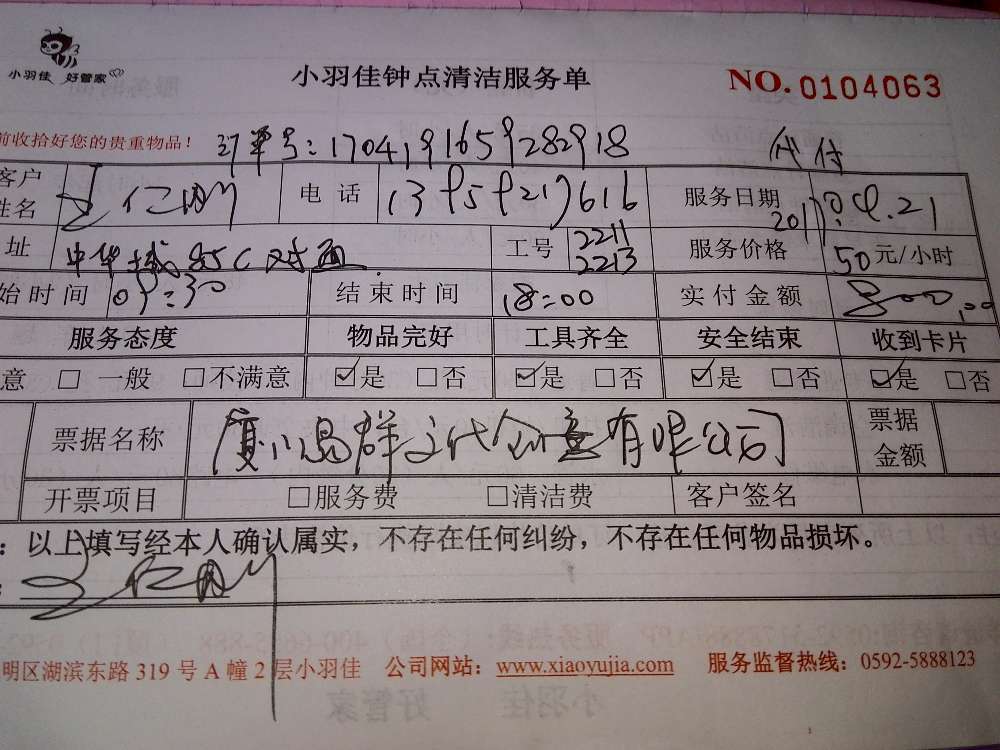 小羽佳 好管家
小羽佳钟点清洁服务单
NO.0104063
前收拾好您的贵重物品！
订单号:1704191659282918 代付
客户姓名 王仁刚 电话 13959217616 服务日期 2017.4.21
址 中华城85C对面 工号 2211 2213 服务价格 50元/小时
始时间 09:30 结束时间 18:00 实付金额 800.00
服务态度 物品完好 工具齐全 安全结束 收到卡片
意 □ 一般 □不满意 ☑是 □否 ☑是 □否 ☑是 □否 ☑是 □否
票据名称 厦门岛群文代创意有限公司 票据金额
开票项目 □服务费 □清洁费 客户签名
：以上填写经本人确认属实，不存在任何纠纷，不存在任何物品损坏。
: 王仁刚
明区湖滨东路 319 号 A 幢 2 层小羽佳 公司网站：www.xiaoyujia.com 服务监督热线：0592-5888123